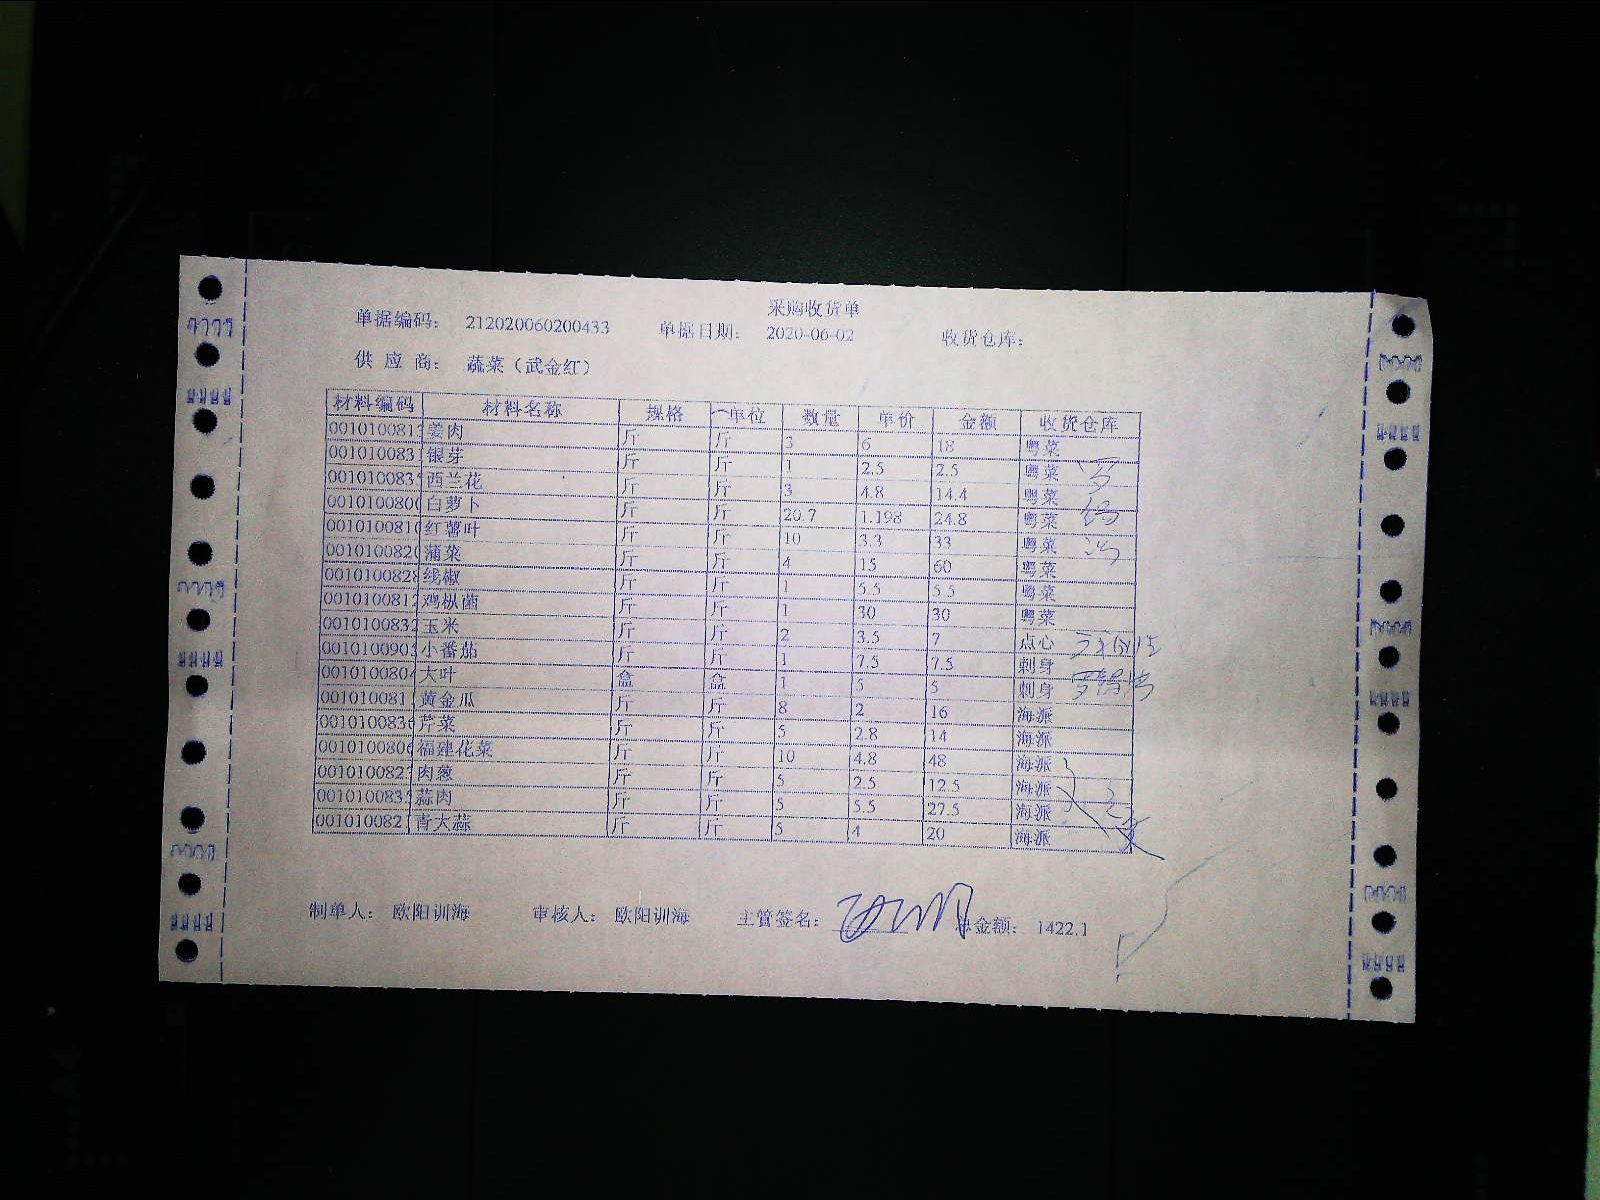 采购收货单
单据编码： 212020060200433 单据日期： 2020-06-02 收货仓库：
供 应 商： 蔬菜（武金红）
材料编码 材料名称 规格 单位 数量 单价 金额 收货仓库
001010081 姜肉 斤 斤 3 6 18 粤菜
001010083 银芽 斤 斤 1 2.5 2.5 粤菜
001010083 西兰花 斤 斤 3 4.8 14.4 粤菜
001010080 白萝卜 斤 斤 20.7 1.198 24.8 粤菜
001010081 红薯叶 斤 斤 10 3.3 33 粤菜
001010082 蒲菜 斤 斤 4 15 60 粤菜
001010082 线椒 斤 斤 1 5.5 5.5 粤菜
001010081 鸡枞菌 斤 斤 1 30 30 粤菜
001010083 玉米 斤 斤 2 3.5 7 点心
001010090 小番茄 斤 斤 1 7.5 7.5 刺身
001010080 大叶 盒 盒 1 5 5 刺身
001010081 黄金瓜 斤 斤 8 2 16 海派
001010083 芹菜 斤 斤 5 2.8 14 海派
001010080 福建花菜 斤 斤 10 4.8 48 海派
001010082 肉葱 斤 斤 5 2.5 12.5 海派
001010083 蒜肉 斤 斤 5 5.5 27.5 海派
001010082 青大蒜 斤 斤 5 4 20 海派
制单人： 欧阳训海 审核人： 欧阳训海 主管签名： 总金额： 1422.1